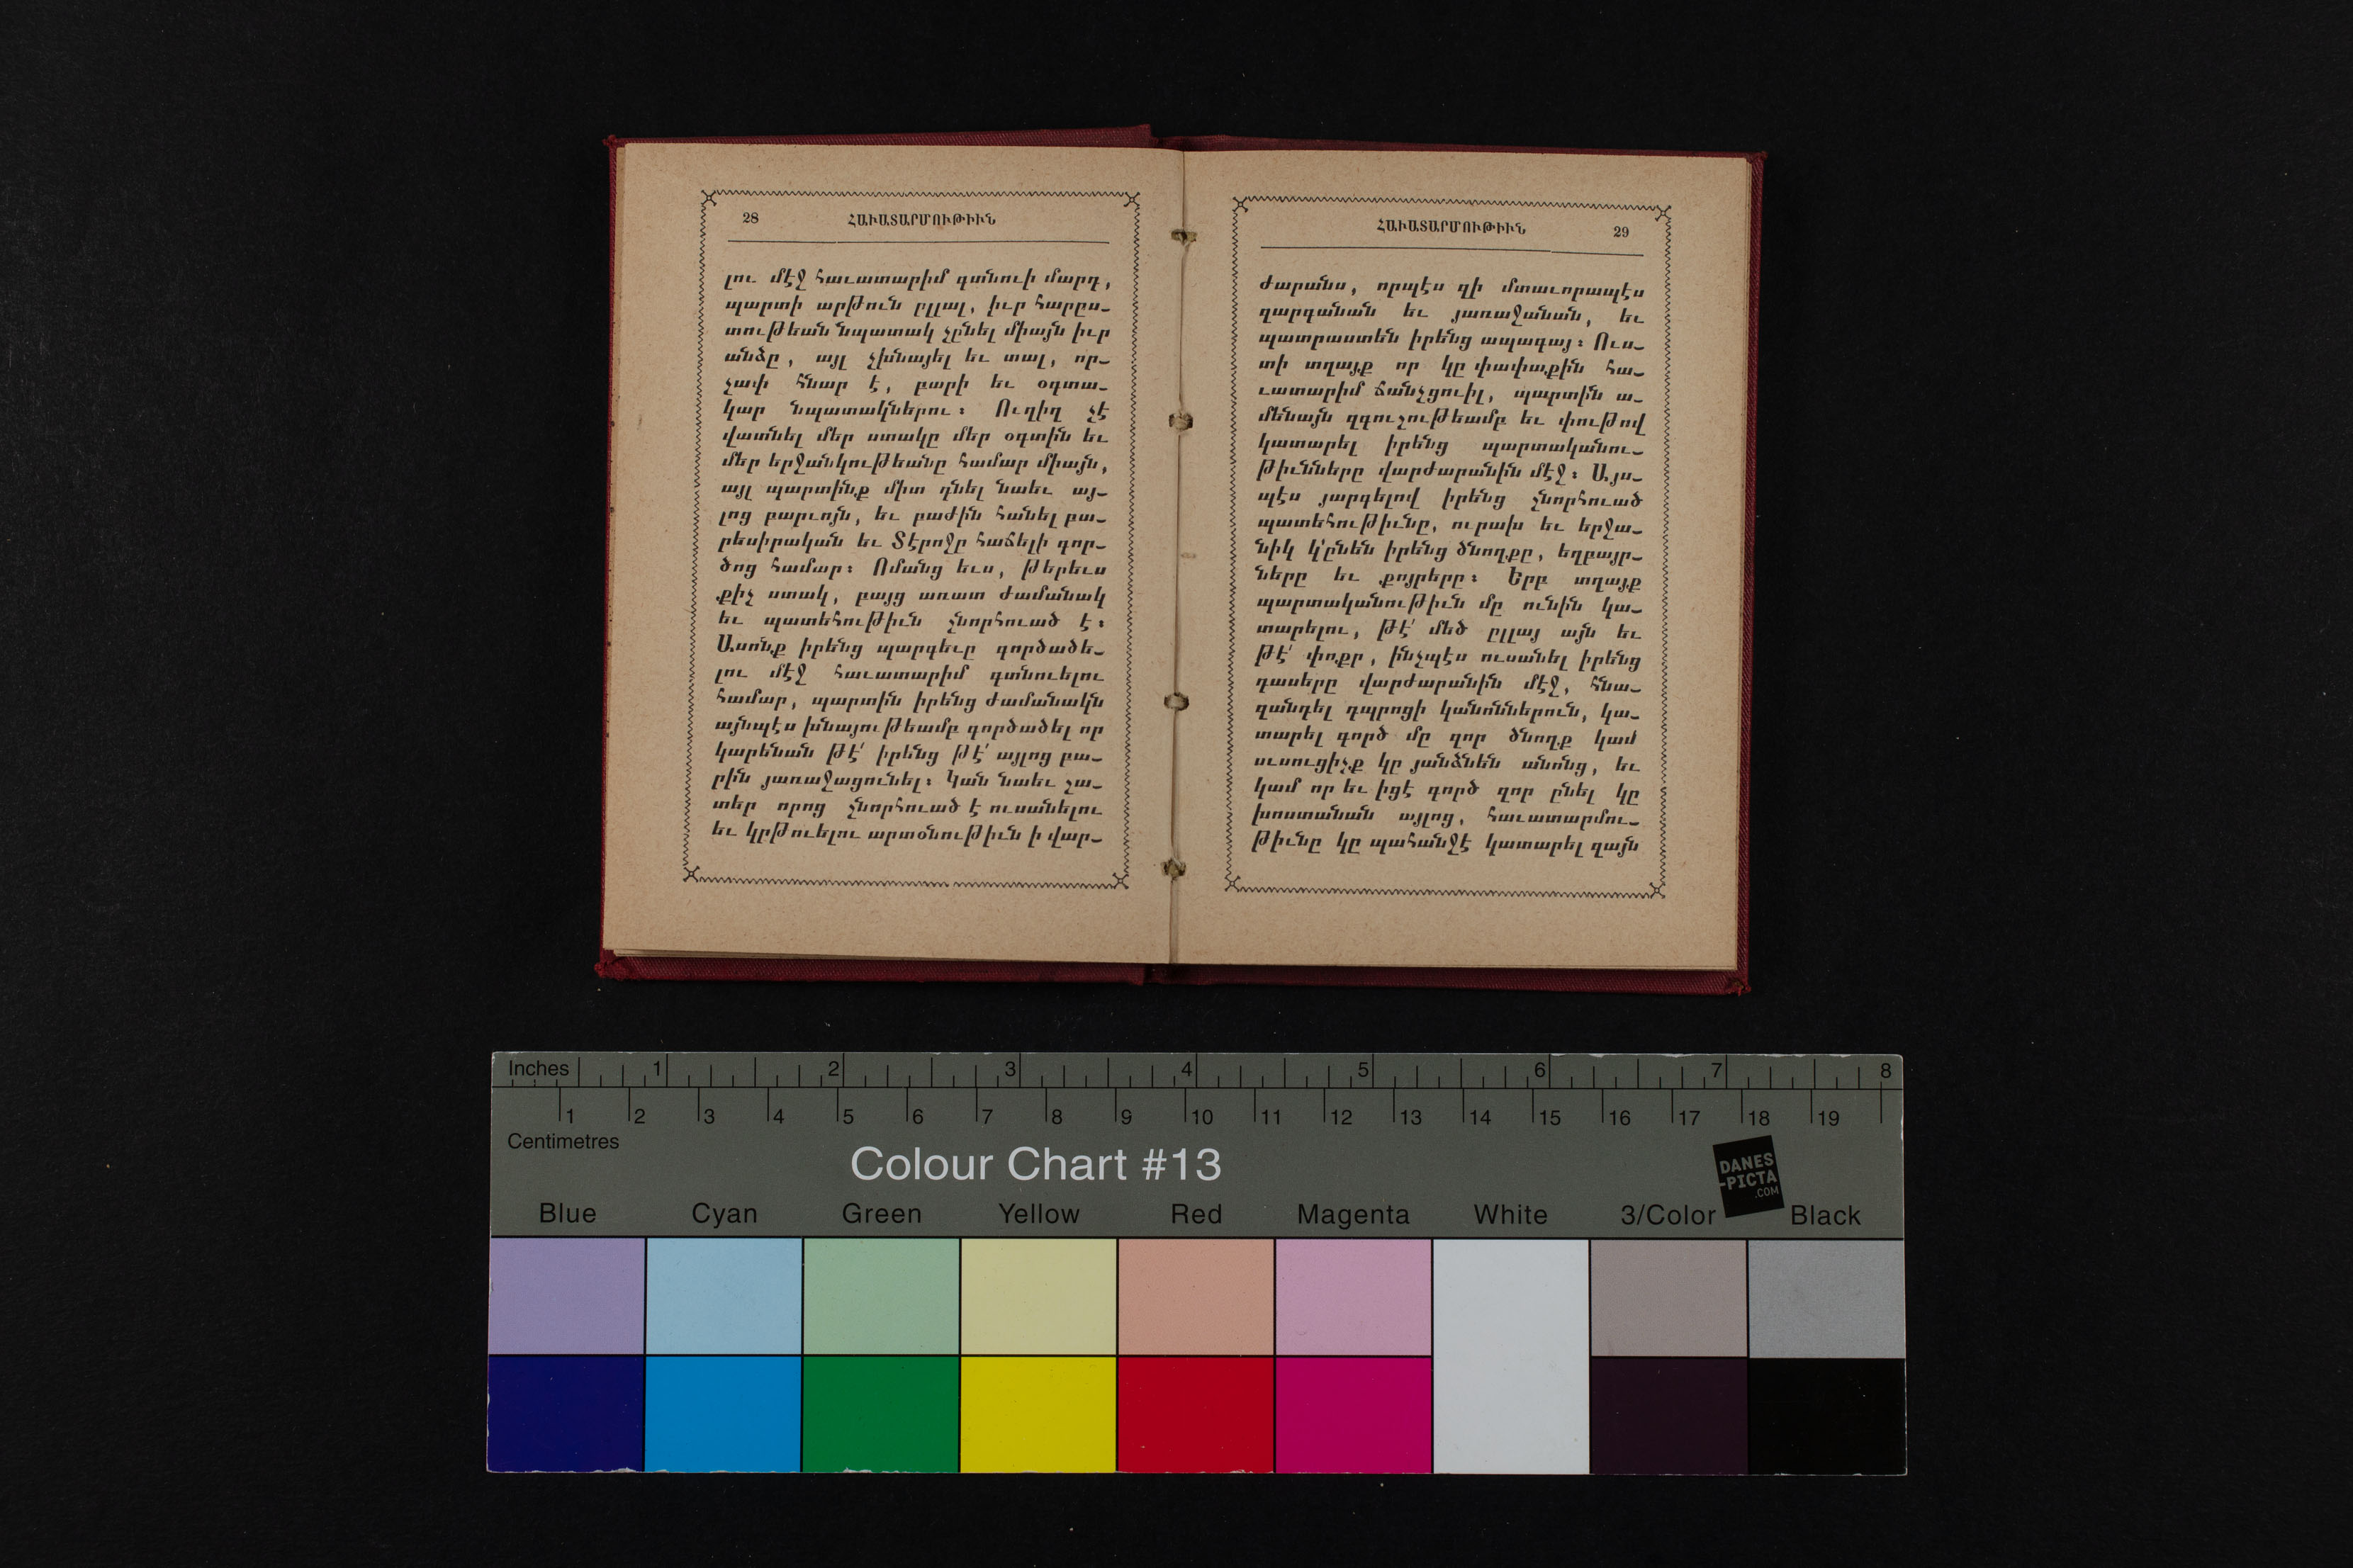 28 ՀԱՒԱՏԱՐՄՈՒԹԻՒՆ
լու մէջ հաւատարիմ գտնուի մարդ,
պարտի արթուն ըլլալ, իւր հարըս-
տութեան նպատակ չընել միայն իւր
անձը, այլ չխնայել եւ տալ, որ-
չափ հնար է, բարի եւ օգտա-
կար նպատակներու։ Ուղիղ չէ
վատնել մեր ստակը մեր օգտին եւ
մեր երջանկութեանը համար միայն,
այլ պարտինք միտ դնել նաեւ այ-
լոց բարւոյն, եւ բաժին հանել բա-
րեսիրական եւ Տէրոջը հաճելի գոր-
ծոց համար։ Ոմանց եւս, թերեւս
քիչ ստակ, բայց առատ ժամանակ
եւ պատեհութիւն շնորհուած է։
Ասոնք իրենց պարգեւը գործածե-
լու մէջ հաւատարիմ գտնուելու
համար, պարտին իրենց ժամանակն
այնպէս խնայութեամբ գործածել որ
կարենան թէ՛ իրենց թէ՛ այլոց բա-
րին յառաջացունել։ Կան նաեւ շա-
տեր որոց շնորհուած է ուսանելու
եւ կրթուելու արտօնութիւն ի վար-
ՀԱՒԱՏԱՐՄՈՒԹԻՒՆ 29
ժարանս, որպէս զի մտաւորապէս
զարգանան եւ յառաջանան, եւ
պատրաստեն իրենց ապագայ։ Ուս-
տի տղայք որ կը փափաքին հա-
ւատարիմ ճանչցուիլ, պարտին ա-
մենայն զգուշութեամբ եւ փութով
կատարել իրենց պարտականու-
թիւնները վարժարանին մէջ։ Այս-
պէս յարգելով իրենց շնորհուած
պատեհութիւնը, ուրախ եւ երջա-
նիկ կ'ընեն իրենց ծնողքը, եղբայր-
ները եւ քոյրերը։ Երբ տղայք
պարտականութիւն մը ունին կա-
տարելու, թէ՛ մեծ ըլլայ այն եւ
թէ՛ փոքր, ինչպէս ուսանել իրենց
դասերը վարժարանին մէջ, հնա-
զանդել դպրոցի կանոններուն, կա-
տարել գործ մը զոր ծնողք կամ
ուսուցիչք կը յանձնեն անոնց, եւ
կամ որ եւ իցէ գործ զոր ընել կը
խոստանան այլոց, հաւատարմու-
թիւնը կը պահանջէ կատարել զայն
Inches 1 2 3 4 5 6 7 8
1 2 3 4 5 6 7 8 9 10 11 12 13 14 15 16 17 18 19
Centimetres
Colour Chart #13
DANES
-PICTA
.COM
Blue Cyan Green Yellow Red Magenta White 3/Color Black